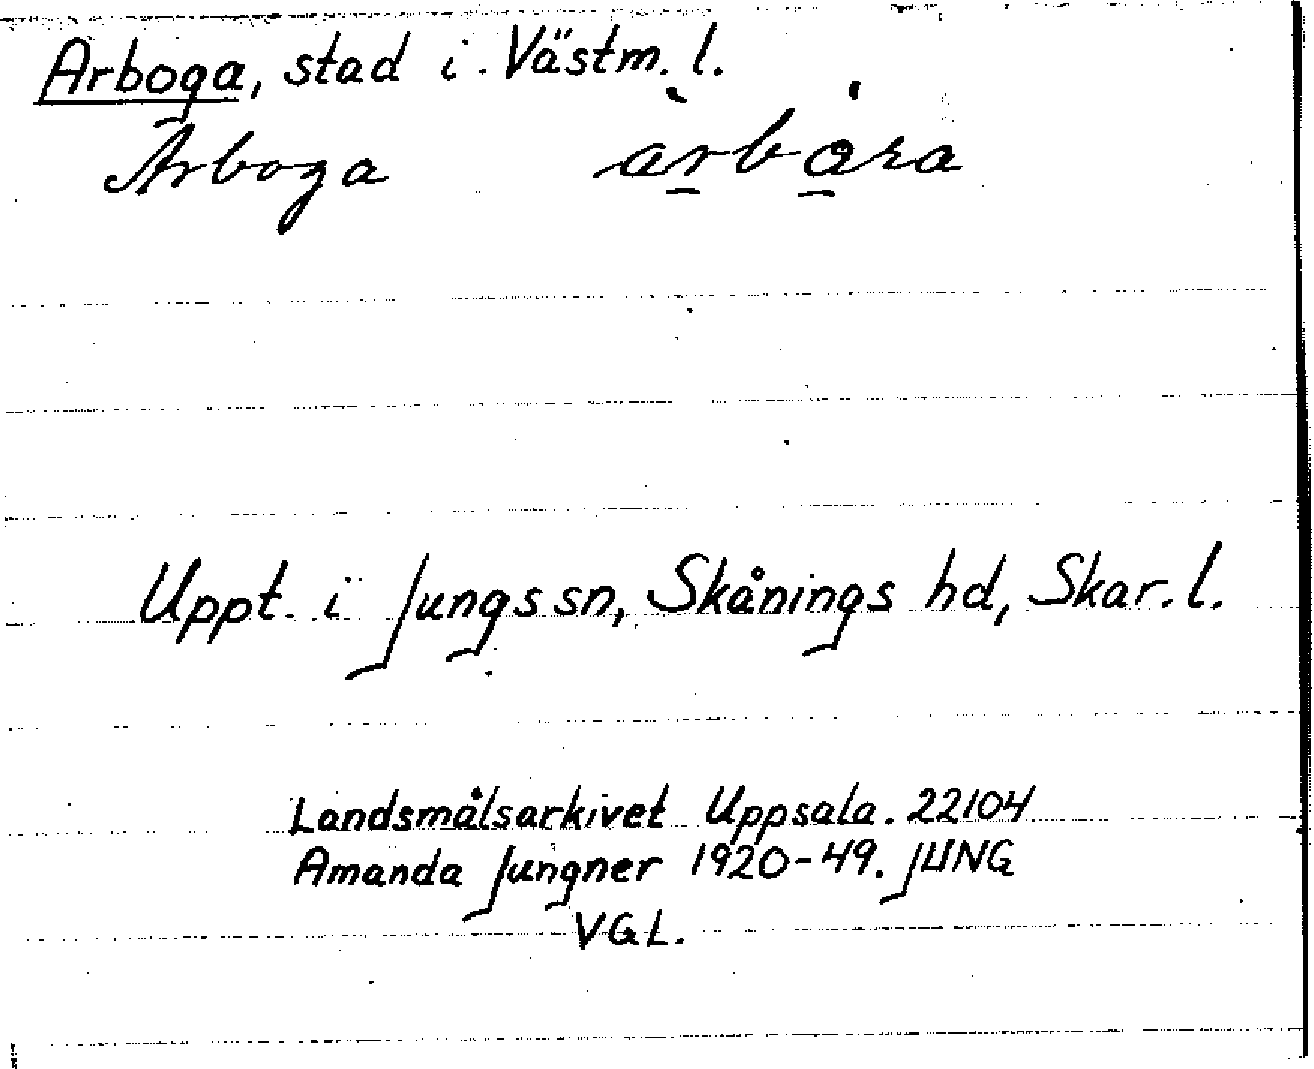 Arboga, stad i Västm. l.
Arboga arbåra
Uppt. i Jungs sn, Skånings hd, Skar. l.
Landsmålsarkivet Uppsala. 22104
Amanda Jungner 1920-49. JUNG
VGL.